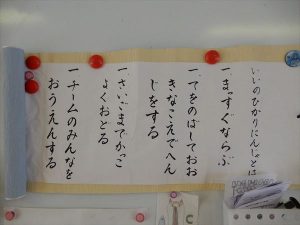 いいのひかりにんじゃとは
一まっすぐならぶ
一てをのばしておお
きなこえでへん
じをする
一さいごまでかっこ
よくおどる
一チームのみんなを
おうえんする